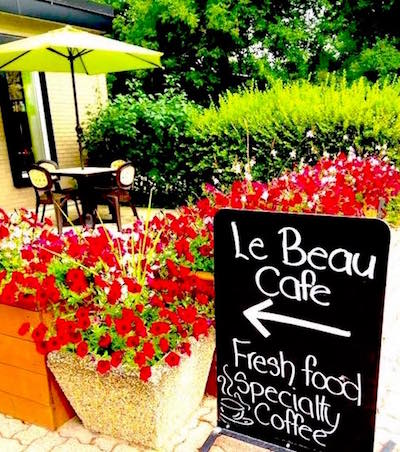 Le Beau
Cafe
Fresh food
Specialty
Coffee